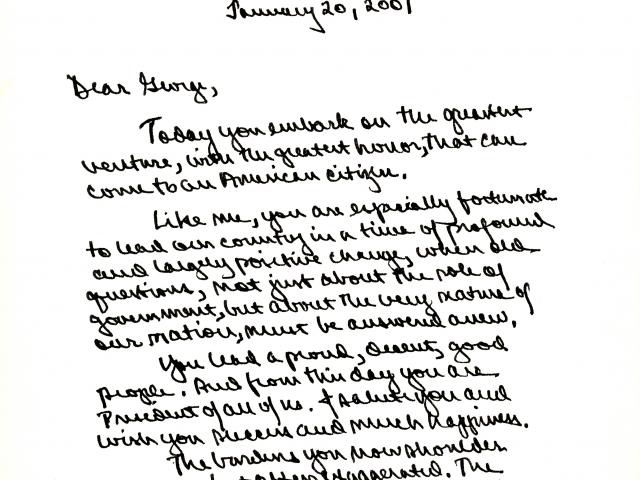 January 20, 2001
Dear George,
Today you embark on the greatest
venture, with the greatest honor, that can
come to an American citizen.
Like me, you are especially fortunate
to lead our country in a time of profound
and largely positive change, when old
questions, not just about the role of
government, but about the very nature of
our nation, must be answered anew.
You lead a proud, decent, good
people. And from this day you are
President of all of us. I salute you and
wish you success and much happiness.
The burdens you now shoulder
exaggerated. The